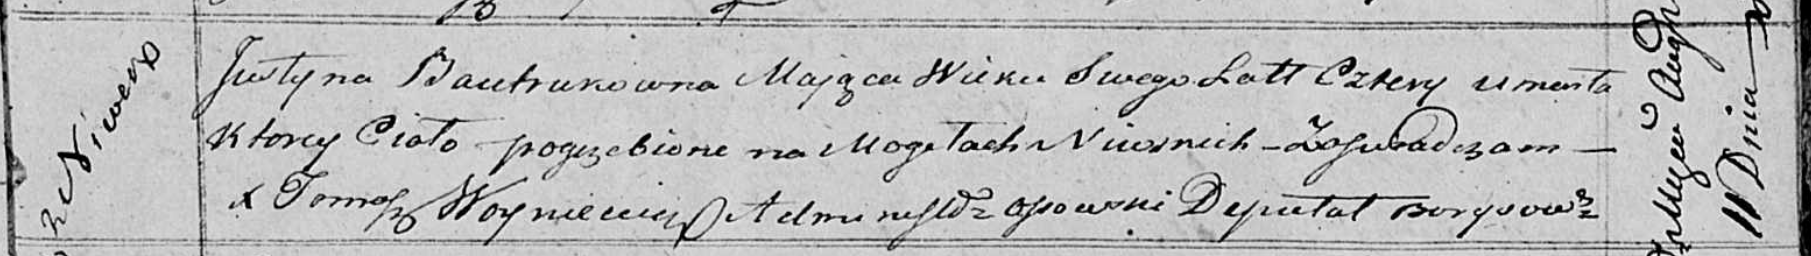 z Niwek
Justyna Bautrukowna Mająca Wieku Swego Latt Cztery umarła
Ktorey Ciało pogrzebione na Mogiłach Niwnich – Zaswiadczam –
x Tomasz Woyniewicz Administr Osowski Deputat Borysow
Dnia